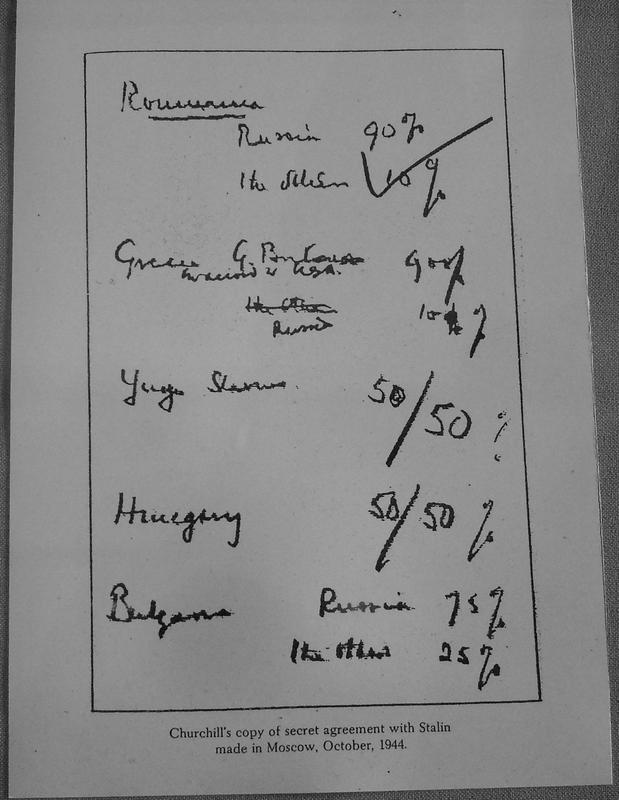 Roumania
Russia 90%
The others 10%
Greece G. Britain 90%
in accord w USA.
The others 10%
Russia
Yugo Slavia. 50/50 %
Hungary 50/50 %
Bulgaria Russia 75%
The others 25%
Churchill's copy of secret agreement with Stalin
made in Moscow, October, 1944.